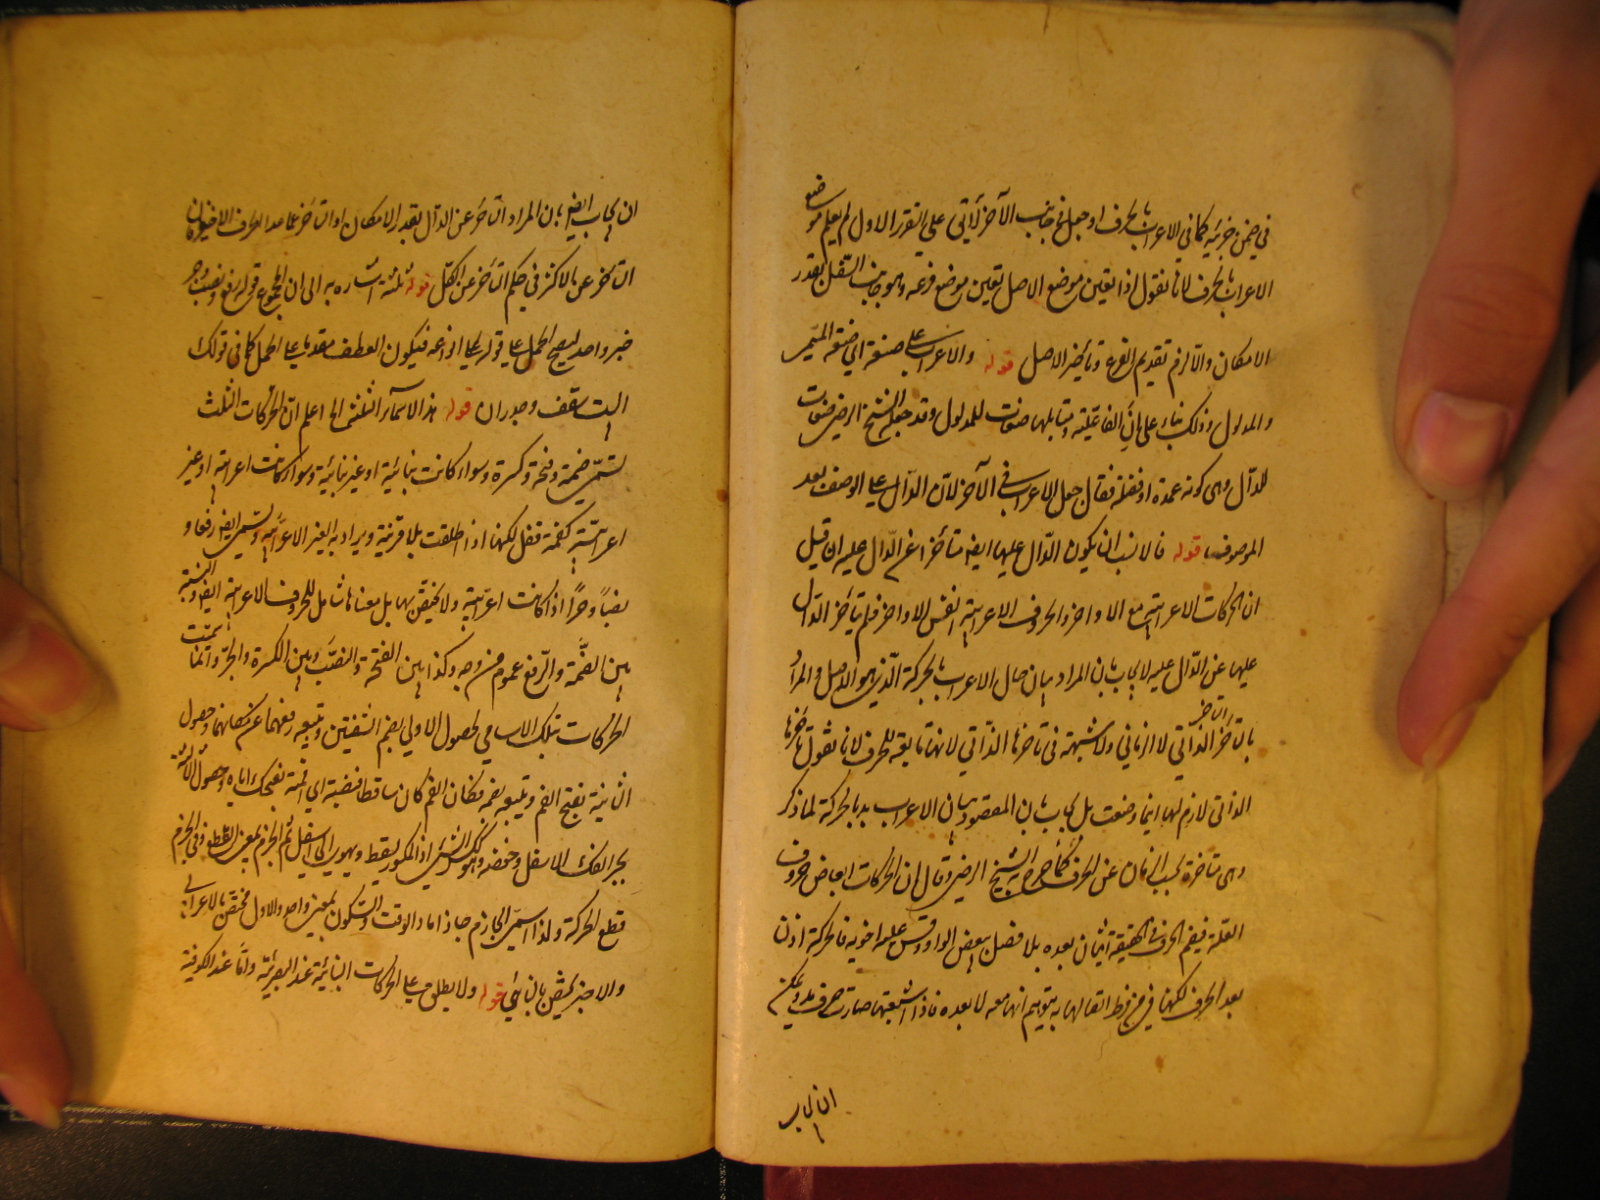 في ضمن جزئية كما في الاعراب بالحرف او جعل في جانب الآخر لا يأتي على التقرر الاول لم يعلم موضع
الاعراب بالحرف لانا نقول اذا تعين موضع الاصل تعين موضع فرعه وهو جانب الثقل بقدر
الامكان والا لزم تقديم الفرع وتأخير الاصل قوله والاعراب على صفته اي صفة المميز
والمدلول وذلك بناء على ان الفاعلية ومقابلها صفات للمدلول وقد جعل الشيخ الرضي صفات
للدال وهي كونه عمدة او فضلة فقال جعل الاعراب في الآخر لان الدال على الوصف بعد
الموصوف قوله فالانسب ان يكون الدال عليها ايضا متأخرا عن الدال عليه ان قيل
ان الحركات الاعرابية مع الاواخر والحروف الاعرابية نفس الاواخر فلم يتأخر الدال
عليها عن الدال عليه لا يجاب بان المراد بيان حال الاعراب بالحركة الذي هو الاصل والمراد
بالتأخر الذاتي لا الزماني ولا شبهة في تأخرها الذاتي لانها تابعة للحرف لانا نقول تأخرها
الذاتي لازم لها اينما وضعت بل يجاب بان المقصود بيان الاعراب بالحركة لما ذكر
وهي متأخرة بحسب الزمان عن الحرف كما صرح به الشيخ الرضي وقال ان الحركات ابعاض حروف
العلة فضم الحرف في الحقيقة اتيان بعده بلا فصل ببعض الواو وقس عليه اخويه فالحركة اذن
بعد الحرف لكنها من فرط اتصالها به يتوهم انها معه لا بعده فاذا اشبعتها صارت حرف مد ويمكن
ان يجاب
ان يجاب ايضا بان المراد التأخر عن الدال بقدر الامكان او التأخر عما عدا الحرف الاخير فان
التأخر عن الاكثر في حكم التأخر عن الكل قوله ثلثة اشار به الى ان المجموع قوله رفع ونصب وجر
خبر واحد ليصح الحمل على قوله انواعه فيكون العطف مقدما على الحمل كما في قولك
البيت سقف وجدران قوله هذه الاسماء الثلثة الخ اعلم ان الحركات الثلث
تسمى ضمة وفتحة وكسرة وسواء كانت بنائية او غير بنائية وسواء كانت اعرابية او غير
اعرابية كضمة قفل لكنها اذا اطلقت بلا قرينة ويراد به الغير الاعرابية وتسمى ايضا رفعا و
نصبا وجرا اذا كانت اعرابية ولا يختص بها بل معناها شامل للحروف الاعرابية ايضا والنسبة
بين الضمة والرفع عموم من وجه وكذا بين الفتحة والنصب وبين الكسرة والجر وانما سميت
الحركات بتلك الاسامي لحصول الاولى بضم الشفتين ويتبعه رفعهما عن مكانهما وحصول
الثانية بفتح الفم ويتبعه نصبه فكان الفم كان ساقطا فنصبته اي اقمته بفتحك اياه وحصول الثالثة
بجر الفك الاسفل وخفضه وهو ككسر الشيء اذ المكسور يسقط ويهوي الى اسفل ثم الجزم بمعنى القطع وفي الجزم
قطع الحركة ولذا سمي الجازم جازما والوقف والسكون بمعنى واحد والاول مختص بالاعرابي
والاخير يختص بالبنائي قوله ولا يطلق على الحركات البنائية عند البصرية واما عند الكوفية